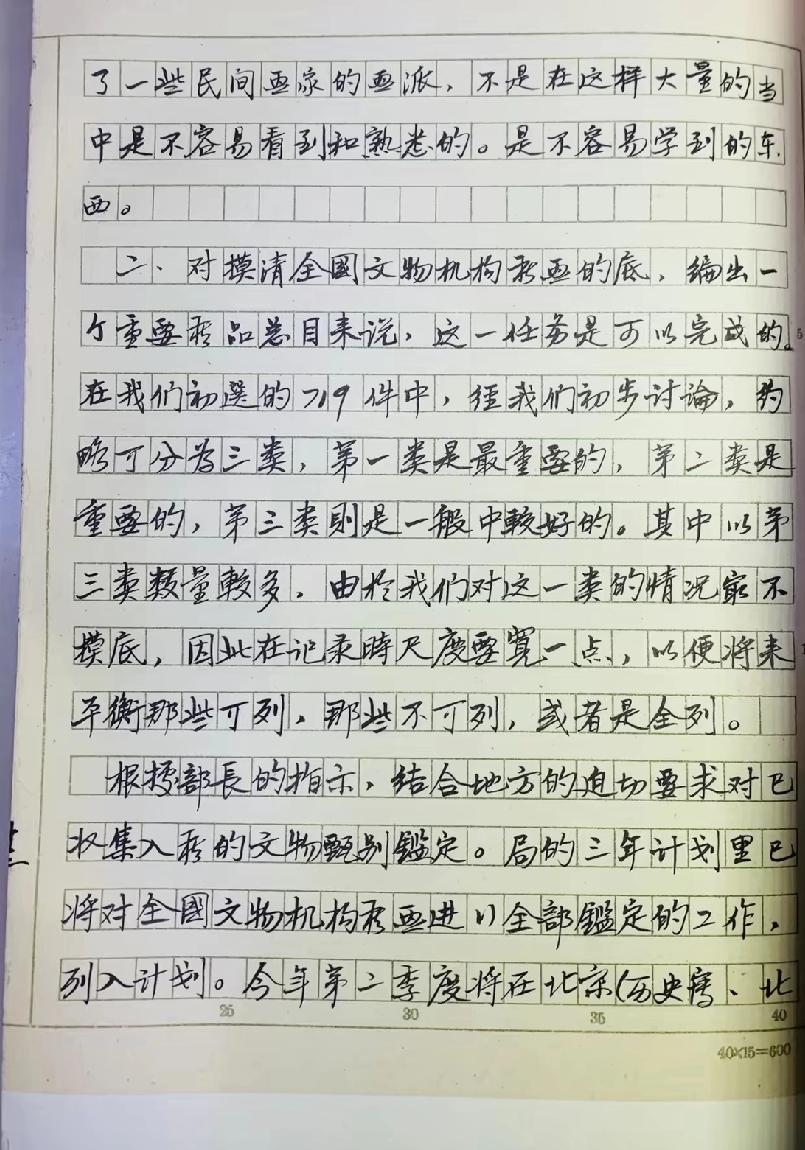 了一些民间画家的画派，不是在这样大量的当
中是不容易看到和熟悉的。是不容易学到的东
西。
二、对摸清全國文物机构藏画的底，编出一
个重要藏品总目来说，这一任务是可以完成的。
在我们初选的719件中，经我们初步讨論，约
略可分为三类，第一类是最重要的，第二类是
重要的，第三类則是一般中較好的。其中以第
三类数量較多，由於我们对这一类的情况最不
摸底，因此在记录時尺度要寬一点，以便将来
平衡那些可列，那些不可列，或者是全列。
根据部長的指示，结合地方的迫切要求对已
收集入藏的文物甄别鑑定。局的三年计划里已
将对全國文物机构藏画进行全部鑑定的工作，
列入计划。今年第二季度将在北京(历史、北
25
30
35
40
40×15=600
5